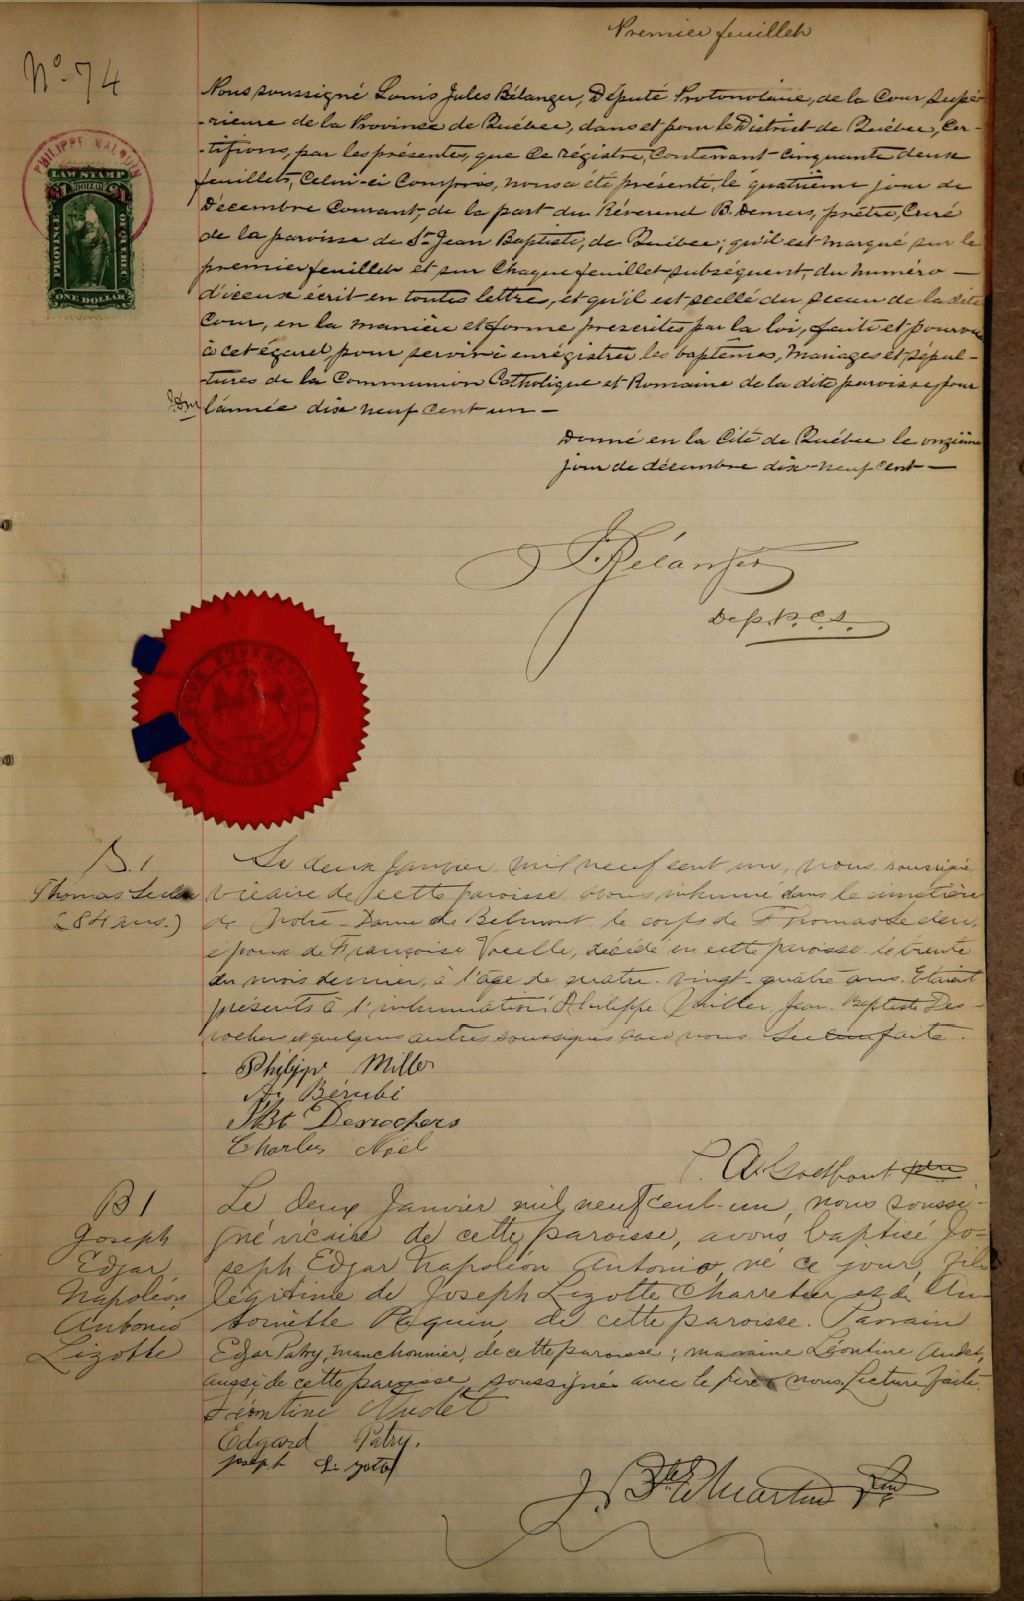 Premier feuillet
No. 74
PHILIPPE MALOUIN
LAW STAMP
$1 DOLLAR $1
PROVINCE
OF QUEBEC
ONE DOLLAR
Nous soussigné Louis Jules Bélanger, Député Protonotaire, de la Cour Supé-
-rieure de la Province de Québec, dans et pour le District de Québec, Cer-
-tifions, par les présentes, que ce régistre, Contenant cinquante deux
feuillets, Celui-ci Compris, nous a été présenté, le quatrième jour de
Décembre Courant, de la part du Révérend B. Demers, prêtre, Curé
de la paroisse de St Jean Baptiste, de Québec; qu'il est marqué sur le
premier feuillet et sur chaque feuillet subséquent, du numéro —
d'iceux écrit en toutes lettres, et qu'il est scellé du sceau de la dite
Cour, en la manière et forme prescrites par la loi, faite et pourvue
à cet égard, pour servir à enrégistrer les baptêmes, Mariages et Sépul-
-tures de la Communion Catholique et Romaine de la dite paroisse, pour
l'année dix neuf cent un —
Donné en la Cité de Québec le onzième
jour de décembre dix-neuf cent —
Bélanger
Dep. P. C. S.
Thomas
(84 ans.)
Le deux Janvier mil neuf cent un, nous soussigné
vicaire de cette paroisse avons inhumé dans le cimetière
de Notre-Dame de Belmont le corps de
époux de Françoise décédé en cette paroisse le trente
du mois dernier, à l'âge de quatre-vingt-quatre ans. Etaient
présents à l'inhumation Philippe Jean-Baptiste Des-
rochers et quelques autres soussignés avec nous. Lecture faite.
Philippe Miller
A. Bérubé
JBt Desrochers
Charles Noël
Godbout ptre
B1
Joseph
Edjar
Napoléon
Antonio
Lizotte
Le deux Janvier mil neuf cent-un, nous soussi-
gné vicaire de cette paroisse, avons baptisé Jo-
seph Edjar Napoléon Antonio, né ce jour, fils
légitime de Joseph Lizotte Charretier et de An-
toinette Paquin, de cette paroisse. Parrain
Edjar Patry, manchonnier, de cette paroisse; marraine Léontine Audet,
aussi de cette paroisse, soussignés avec le père & nous. Lecture faite.
Léontine Audet
Edgard Patry.
joseph Lizotte
Martin Ptre